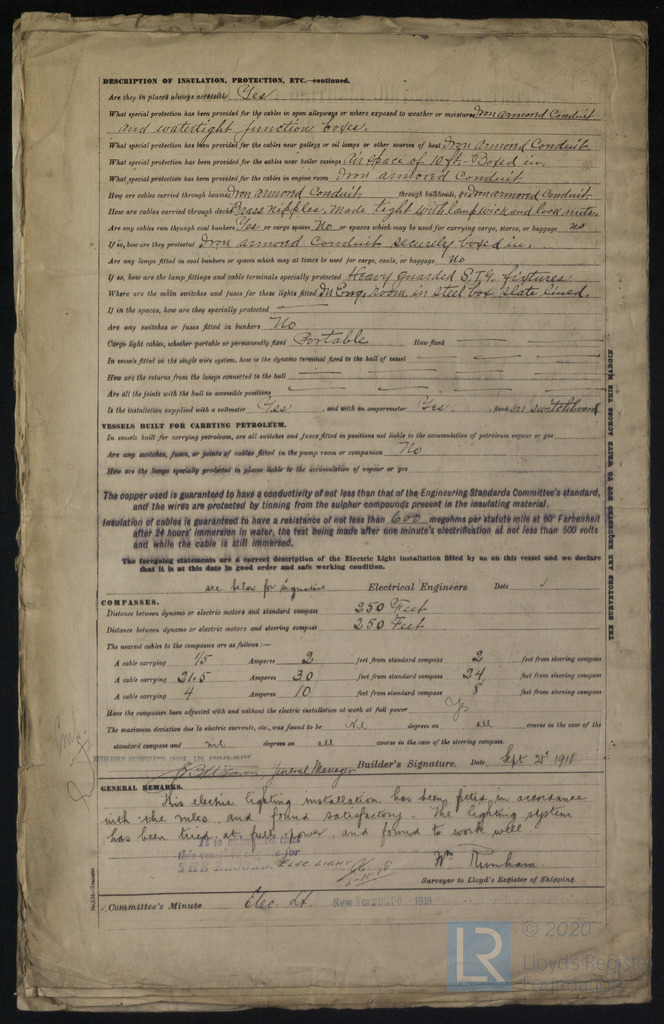 DESCRIPTION OF INSULATION, PROTECTION, ETC.—continued.
Are they in places always accessible Yes
What special protection has been provided for the cables in open alleyways or where exposed to weather or moisture Iron armord Conduit
and watertight junction boxes.
What special protection has been provided for the cables near galleys or oil lamps or other sources of heat Iron armord Conduit
What special protection has been provided for the cables near boiler casings Air space of 10 ft. - Boxed in.
What special protection has been provided for the cables in engine room Iron armored Conduit
How are cables carried through beams Iron armord Conduit through bulkheads, &c Iron armored Conduit.
How are cables carried through decks Brass nipples, made tight with lampwick and lock nuts.
Are any cables run through coal bunkers Yes or cargo spaces No or spaces which may be used for carrying cargo, stores, or baggage No
If so, how are they protected Iron armord Conduit securely boxed in.
Are any lamps fitted in coal bunkers or spaces which may at times be used for cargo, coals, or baggage No
If so, how are the lamp fittings and cable terminals specially protected Heavy guarded S.T.G. fixtures
Where are the main switches and fuses for these lights fitted In Eng. room, in steel box slate lined.
If in the spaces, how are they specially protected
Are any switches or fuses fitted in bunkers No
Cargo light cables, whether portable or permanently fixed Portable How fixed
In vessels fitted on the single wire system, how is the dynamo terminal fixed to the hull of vessel
How are the returns from the lamps connected to the hull
Are all the joints with the hull in accessible positions
Is the installation supplied with a voltmeter Yes, and with an amperemeter Yes, fixed on switchboard
VESSELS BUILT FOR CARRYING PETROLEUM.
In vessels built for carrying petroleum, are all switches and fuses fitted in positions not liable to the accumulation of petroleum vapour or gas
Are any switches, fuses, or joints of cables fitted in the pump room or companion No
How are the lamps specially protected in places liable to the accumulation of vapour or gas
The copper used is guaranteed to have a conductivity of not less than that of the Engineering Standards Committee's standard,
and the wires are protected by tinning from the sulphur compounds present in the insulating material.
Insulation of cables is guaranteed to have a resistance of not less than 600 megohms per statute mile at 60° Farhenheit
after 24 hours' immersion in water, the test being made after one minute's electrification at not less than 500 volts
and while the cable is still immersed.
The foregoing statements are a correct description of the Electric Light installation fitted by us on this vessel and we declare
that it is at this date in good order and safe working condition.
see below for signature Electrical Engineers Date
COMPASSES.
Distance between dynamo or electric motors and standard compass 250 Feet
Distance between dynamo or electric motors and steering compass 250 Feet
The nearest cables to the compasses are as follows:—
A cable carrying 15 Amperes 2 feet from standard compass 2 feet from steering compass
A cable carrying 21.5 Amperes 30 feet from standard compass 24 feet from steering compass
A cable carrying 4 Amperes 10 feet from standard compass 8 feet from steering compass
Have the compasses been adjusted with and without the electric installation at work at full power Yes
The maximum deviation due to electric currents, etc., was found to be Nil degrees on all course in the case of the
standard compass and nil degrees on all course in the case of the steering compass.
General Manager Builder's Signature. Date Sept 28 1918
GENERAL REMARKS.
This electric lighting installation has been fitted in accordance
with the rules, and found satisfactory. The lighting system
has been tried at full power, and found to work well.
THE RECORD. ELEC. LIGHT
Wm
Surveyor to Lloyd's Register of Shipping
Committee's Minute Elec. Lt. New York 1918
THE SURVEYORS ARE REQUESTED NOT TO WRITE ACROSS THIS MARGIN
LR
© 2020
Lloyd's Register
Foundation